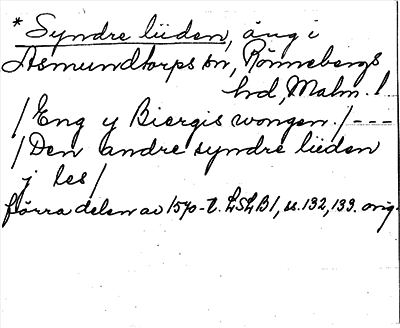 * Syndre liiden, äng i
Asmundtorps sn, Rönnebergs
hd, Malm. l.
/ Eng y Biergis wongen. / ---
/ Den andre syndre liiden
j les /
förra delen av 1570-t. LSLB1, s. 132, 133. orig.